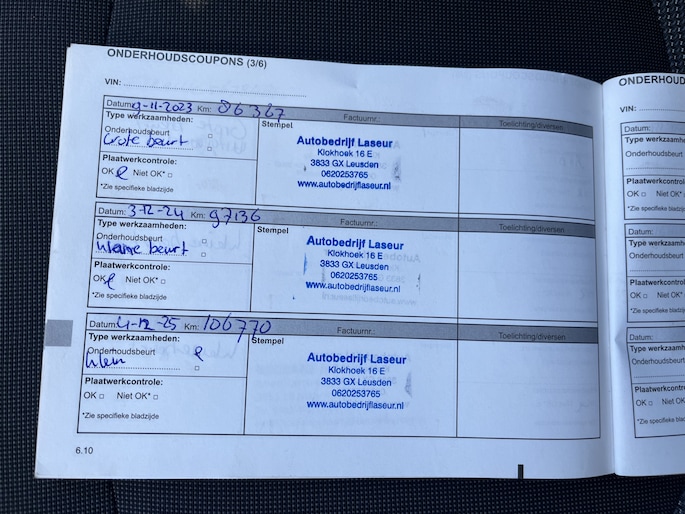 ONDERHOUDSCOUPONS (3/6)
VIN:
Datum: 9-11-2023 Km: 86367 Factuurnr.: Toelichting/diversen
Type werkzaamheden:
Onderhoudsbeurt
Grote beurt
Plaatwerkcontrole:
OK Niet OK*
*Zie specifieke bladzijde
Stempel
Autobedrijf Laseur
Klokhoek 16 E
3833 GX Leusden
0620253765
www.autobedrijflaseur.nl
Datum: 3-12-24 Km: 97136 Factuurnr.: Toelichting/diversen
Type werkzaamheden:
Onderhoudsbeurt
kleine beurt
Plaatwerkcontrole:
OK Niet OK*
*Zie specifieke bladzijde
Stempel
Autobedrijf Laseur
Klokhoek 16 E
3833 GX Leusden
0620253765
www.autobedrijflaseur.nl
Datum: 4-12-25 Km: 106770 Factuurnr.: Toelichting/diversen
Type werkzaamheden:
Onderhoudsbeurt
klein
Plaatwerkcontrole:
OK Niet OK*
*Zie specifieke bladzijde
Stempel
Autobedrijf Laseur
Klokhoek 16 E
3833 GX Leusden
0620253765
www.autobedrijflaseur.nl
6.10
ONDERHOUD
VIN:
Datum:
Type werkzaamh
Onderhoudsbeurt
Plaatwerkcontrol
OK Niet OK*
*Zie specifieke bladz
Datum:
Type werkzaamh
Onderhoudsbeurt
Plaatwerkcontro
OK Niet OK
*Zie specifieke bladz
Datum:
Type werkzaamh
Onderhoudsbeurt
Plaatwerkcontro
OK Niet OK
*Zie specifieke bladz